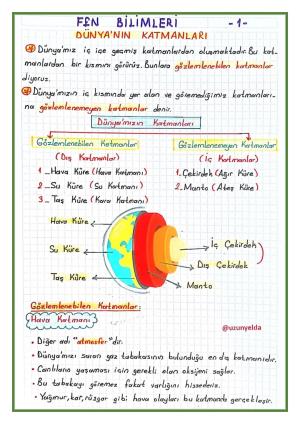 FEN BİLİMLERİ -1-
DÜNYA'NIN KATMANLARI
Dünya'mız iç içe geçmiş katmanlardan oluşmaktadır. Bu kat-
manlardan bir kısmını görürüz. Bunlara gözlemlenebilen katmanlar
diyoruz.
Dünya'mızın iç kısmında yer alan ve göremediğimiz katmanları-
na gözlemlenemeyen katmanlar denir.
Dünya'mızın Katmanları
Gözlemlenebilen Katmanlar
(Dış Katmanlar)
1_Hava Küre (Hava Katmanı)
2_Su Küre (Su Katmanı)
3_Taş Küre (Kara Katmanı)
Gözlemlenemeyen Katmanlar
(İç Katmanlar)
1.Çekirdek (Ağır Küre)
2.Manto (Ateş Küre)
Hava Küre
Su Küre
Taş Küre
İç Çekirdek
Dış Çekirdek
Manto
Gözlemlenebilen Katmanlar:
Hava Katmanı
@uzunyelda
• Diğer adı "atmosfer"dir.
• Dünya'mızı saran gaz tabakasının bulunduğu en dış katmanıdır.
• Canlıların yaşaması için gerekli olan oksijeni sağlar.
• Bu tabakayı göremez fakat varlığını hissederiz.
• Yağmur, kar, rüzgar gibi hava olayları bu katmanda gerçekleşir.